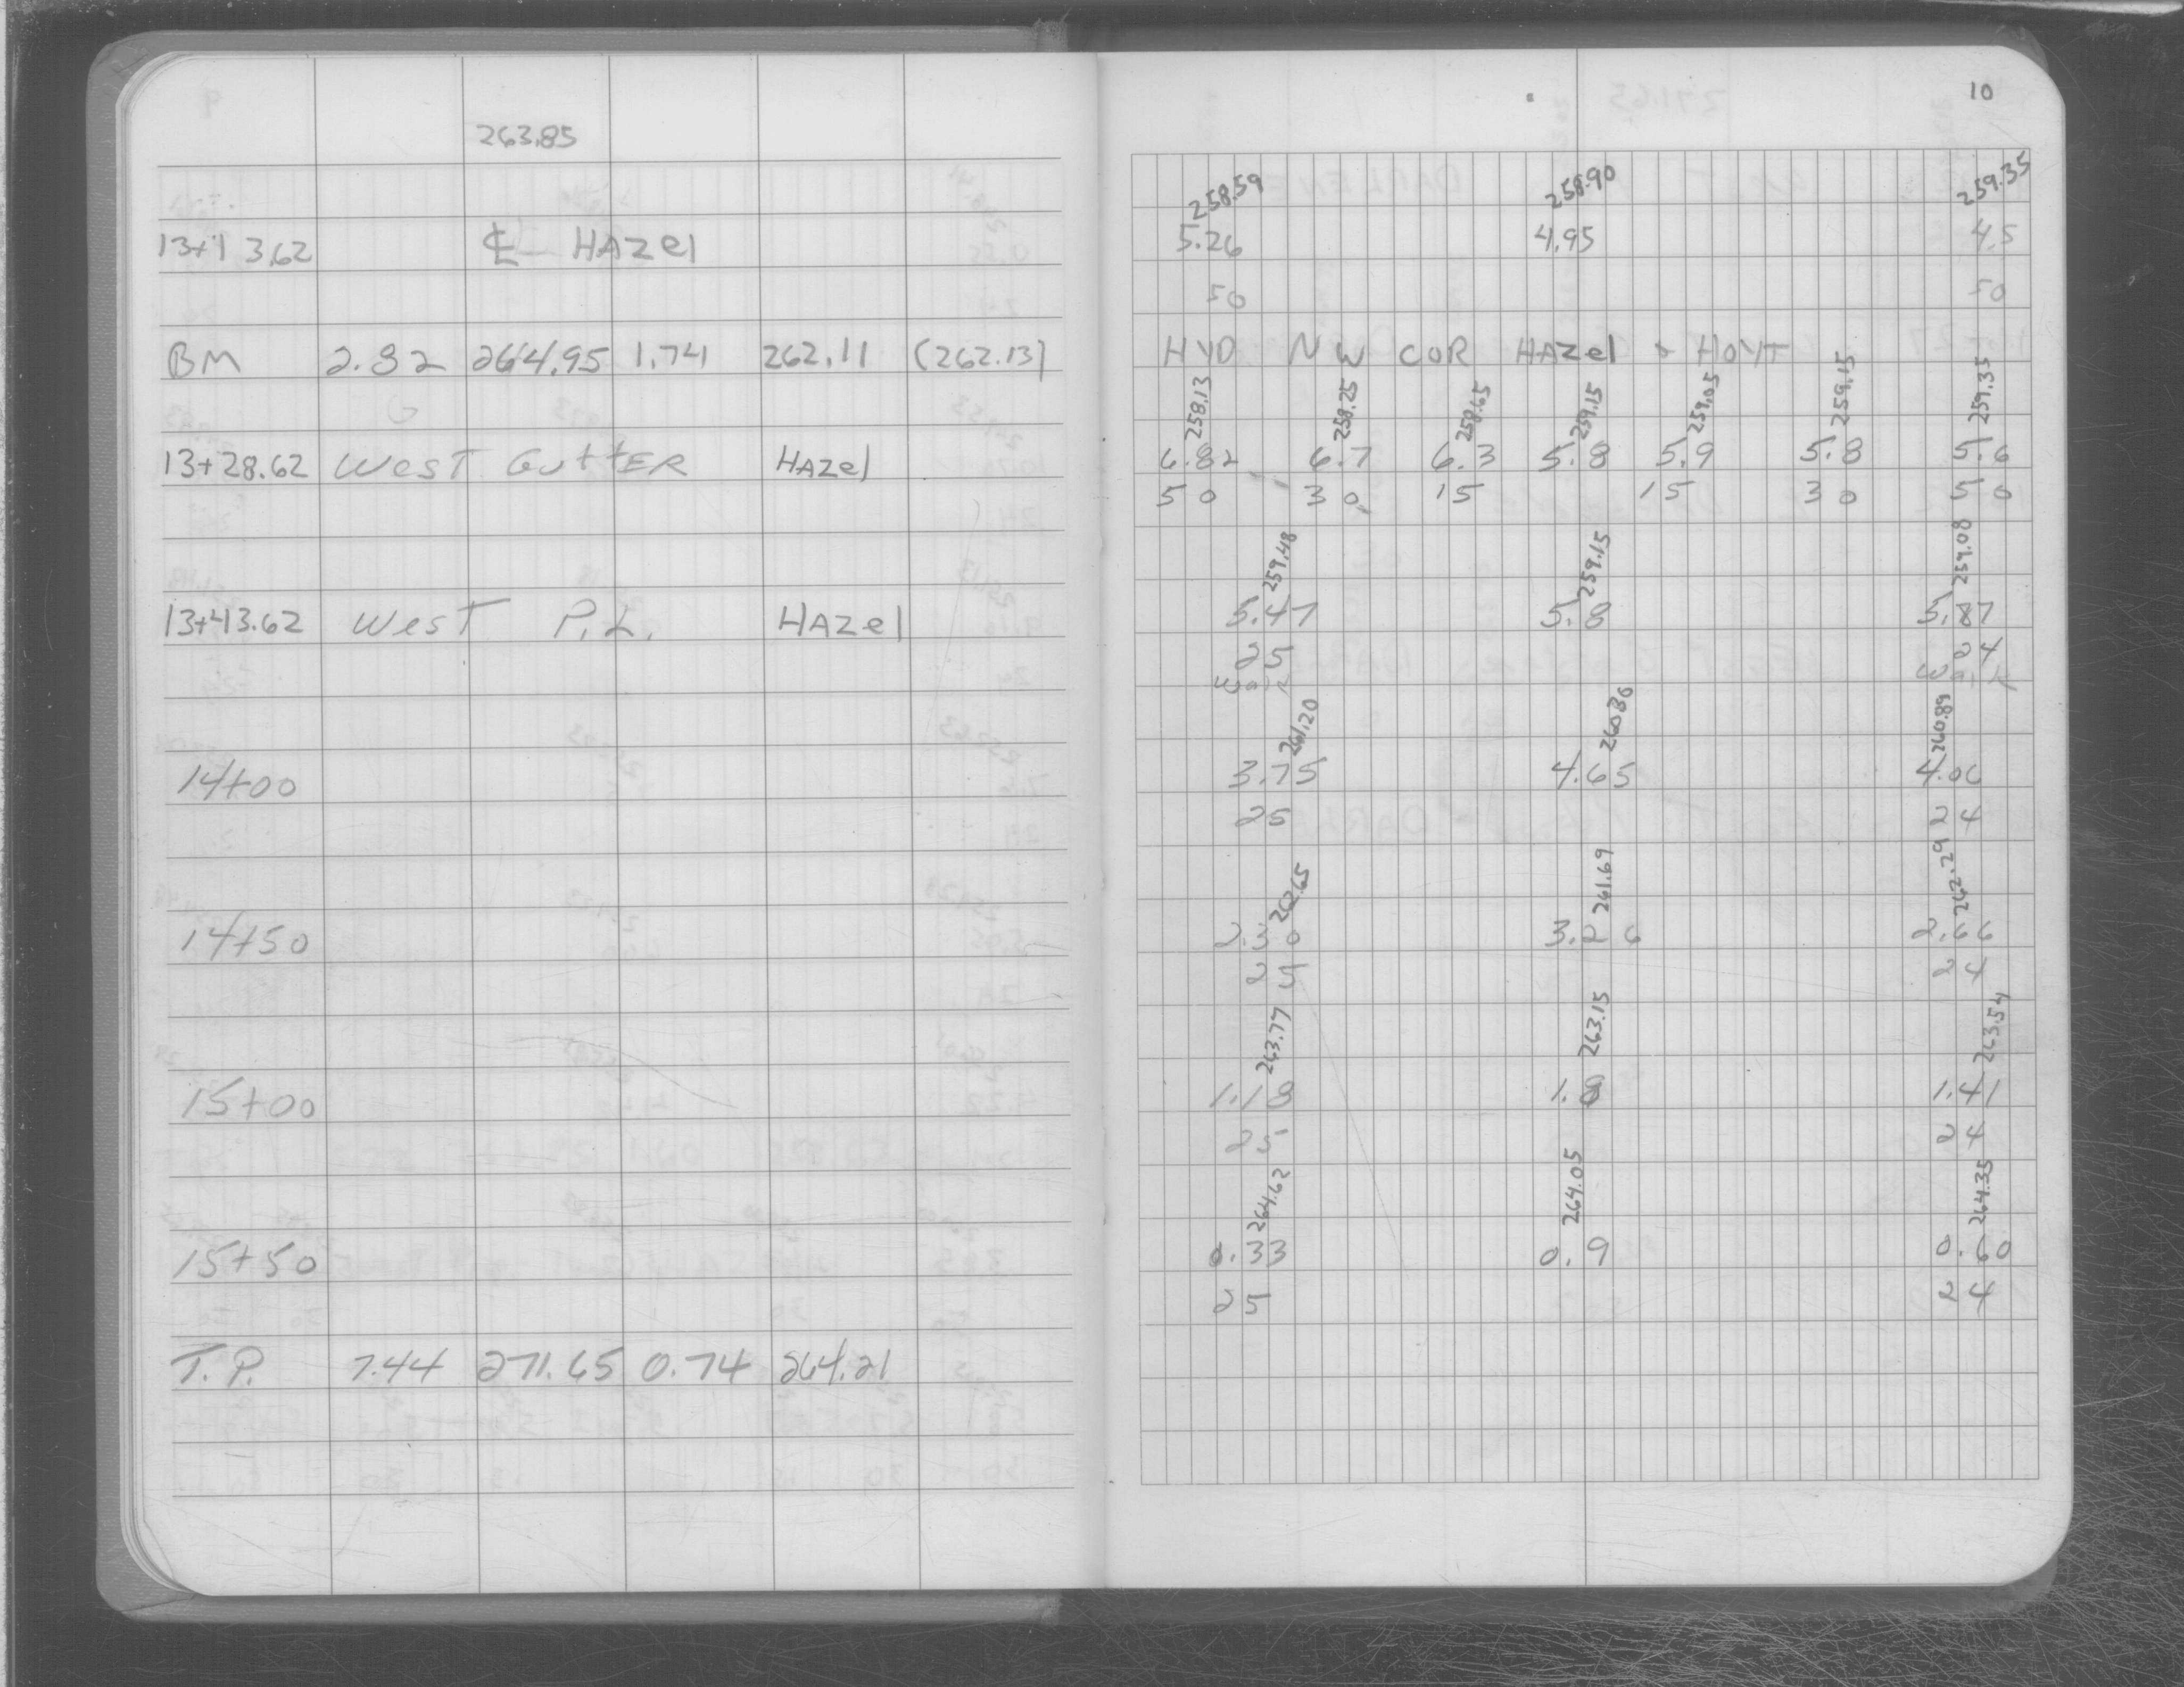 10
263.85
258.59 258.90 259.35
13+13.62 ℄ HAzel 5.26 4.95 4.5
50 50
BM 2.82 264.95 1.74 262.11 (262.13) HYD NW COR HAzel & HOYT
258.13 258.25 258.65 259.15 259.05 259.15 259.35
13+28.62 WesT GuttER HAzel 6.82 6.7 6.3 5.8 5.9 5.8 5.6
50 30 15 15 30 50
259.48 259.15 259.08
13+43.62 WesT P.L. HAzel 5.47 5.8 5.87
25 24
Walk Walk
261.20 260.30 260.89
14+00 3.75 4.65 4.06
25 24
262.65 261.69 262.29
14+50 2.30 3.26 2.66
25 24
263.77 263.15 263.54
15+00 1.18 1.8 1.41
25 24
264.62 264.05 264.35
15+50 0.33 0.9 0.60
25 24
T.P. 7.44 271.65 0.74 264.21